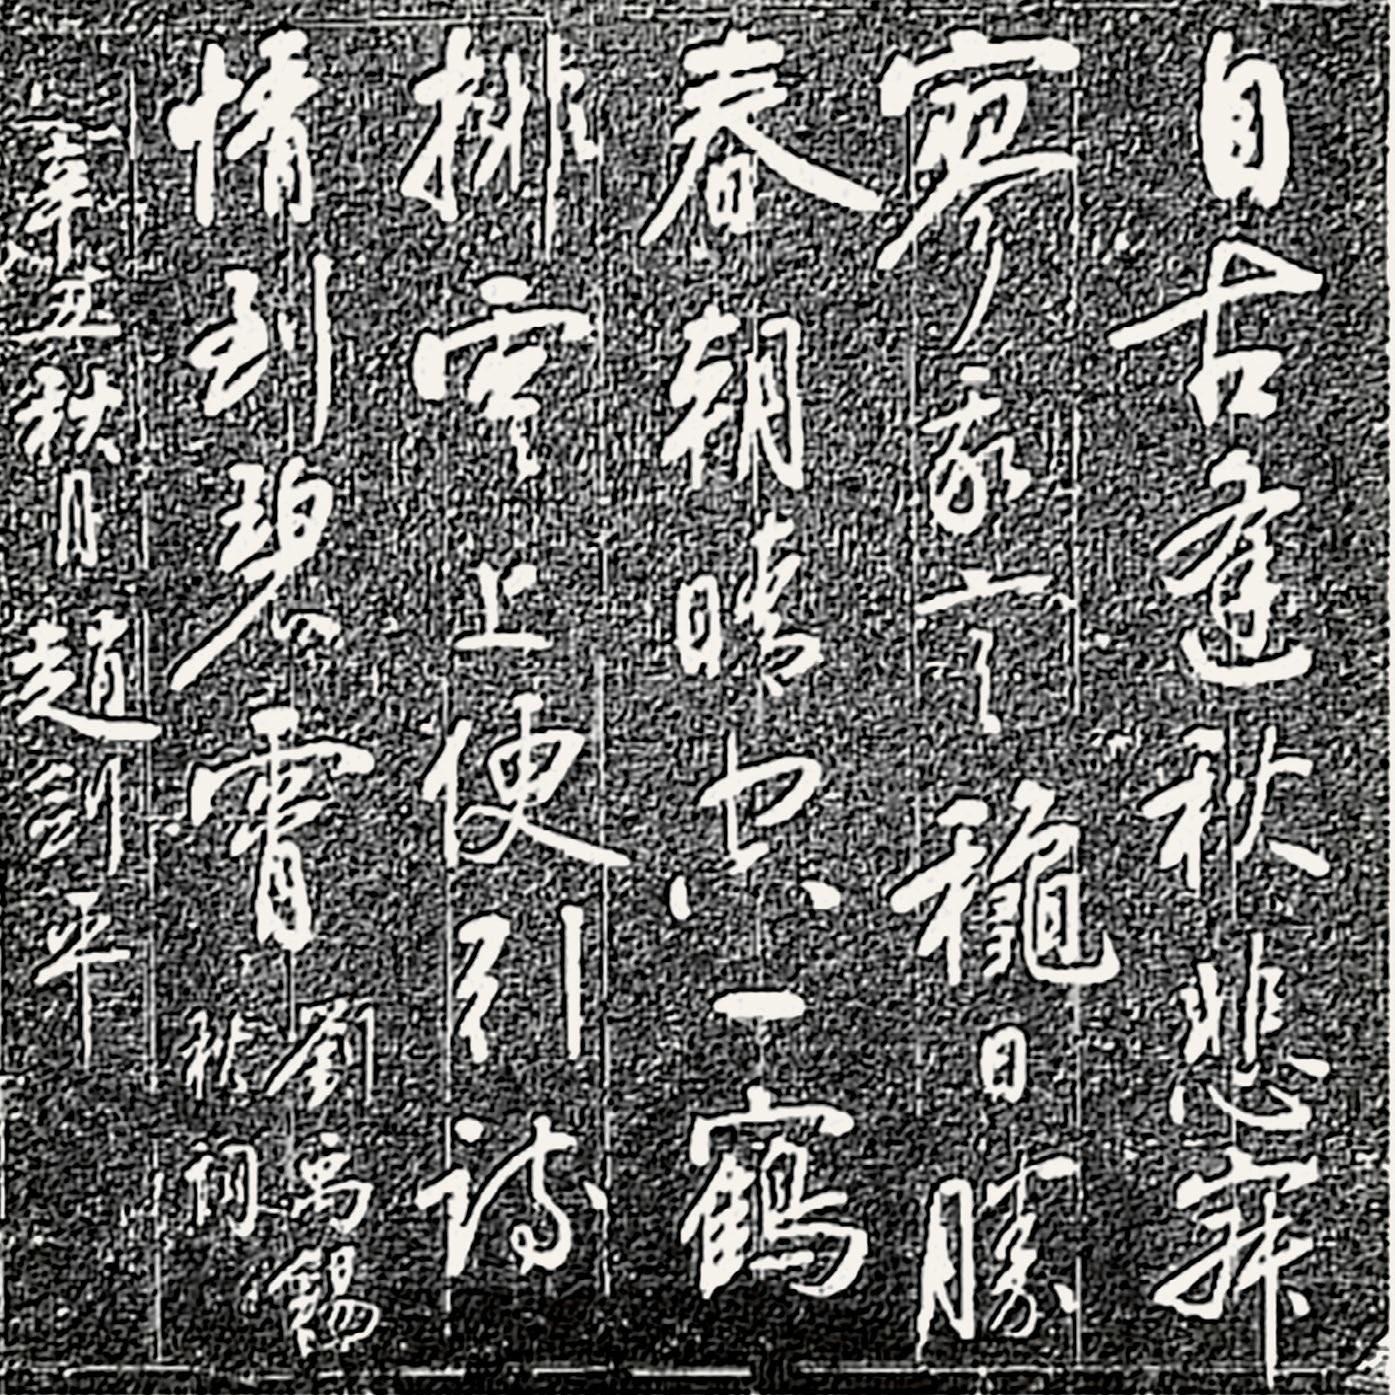 自古逢秋悲寂
寥我言穐日勝
春朝晴空一鶴
排雲上便引詩
情到碧霄
劉禹錫
秋詞
辛丑秋月趙劍平